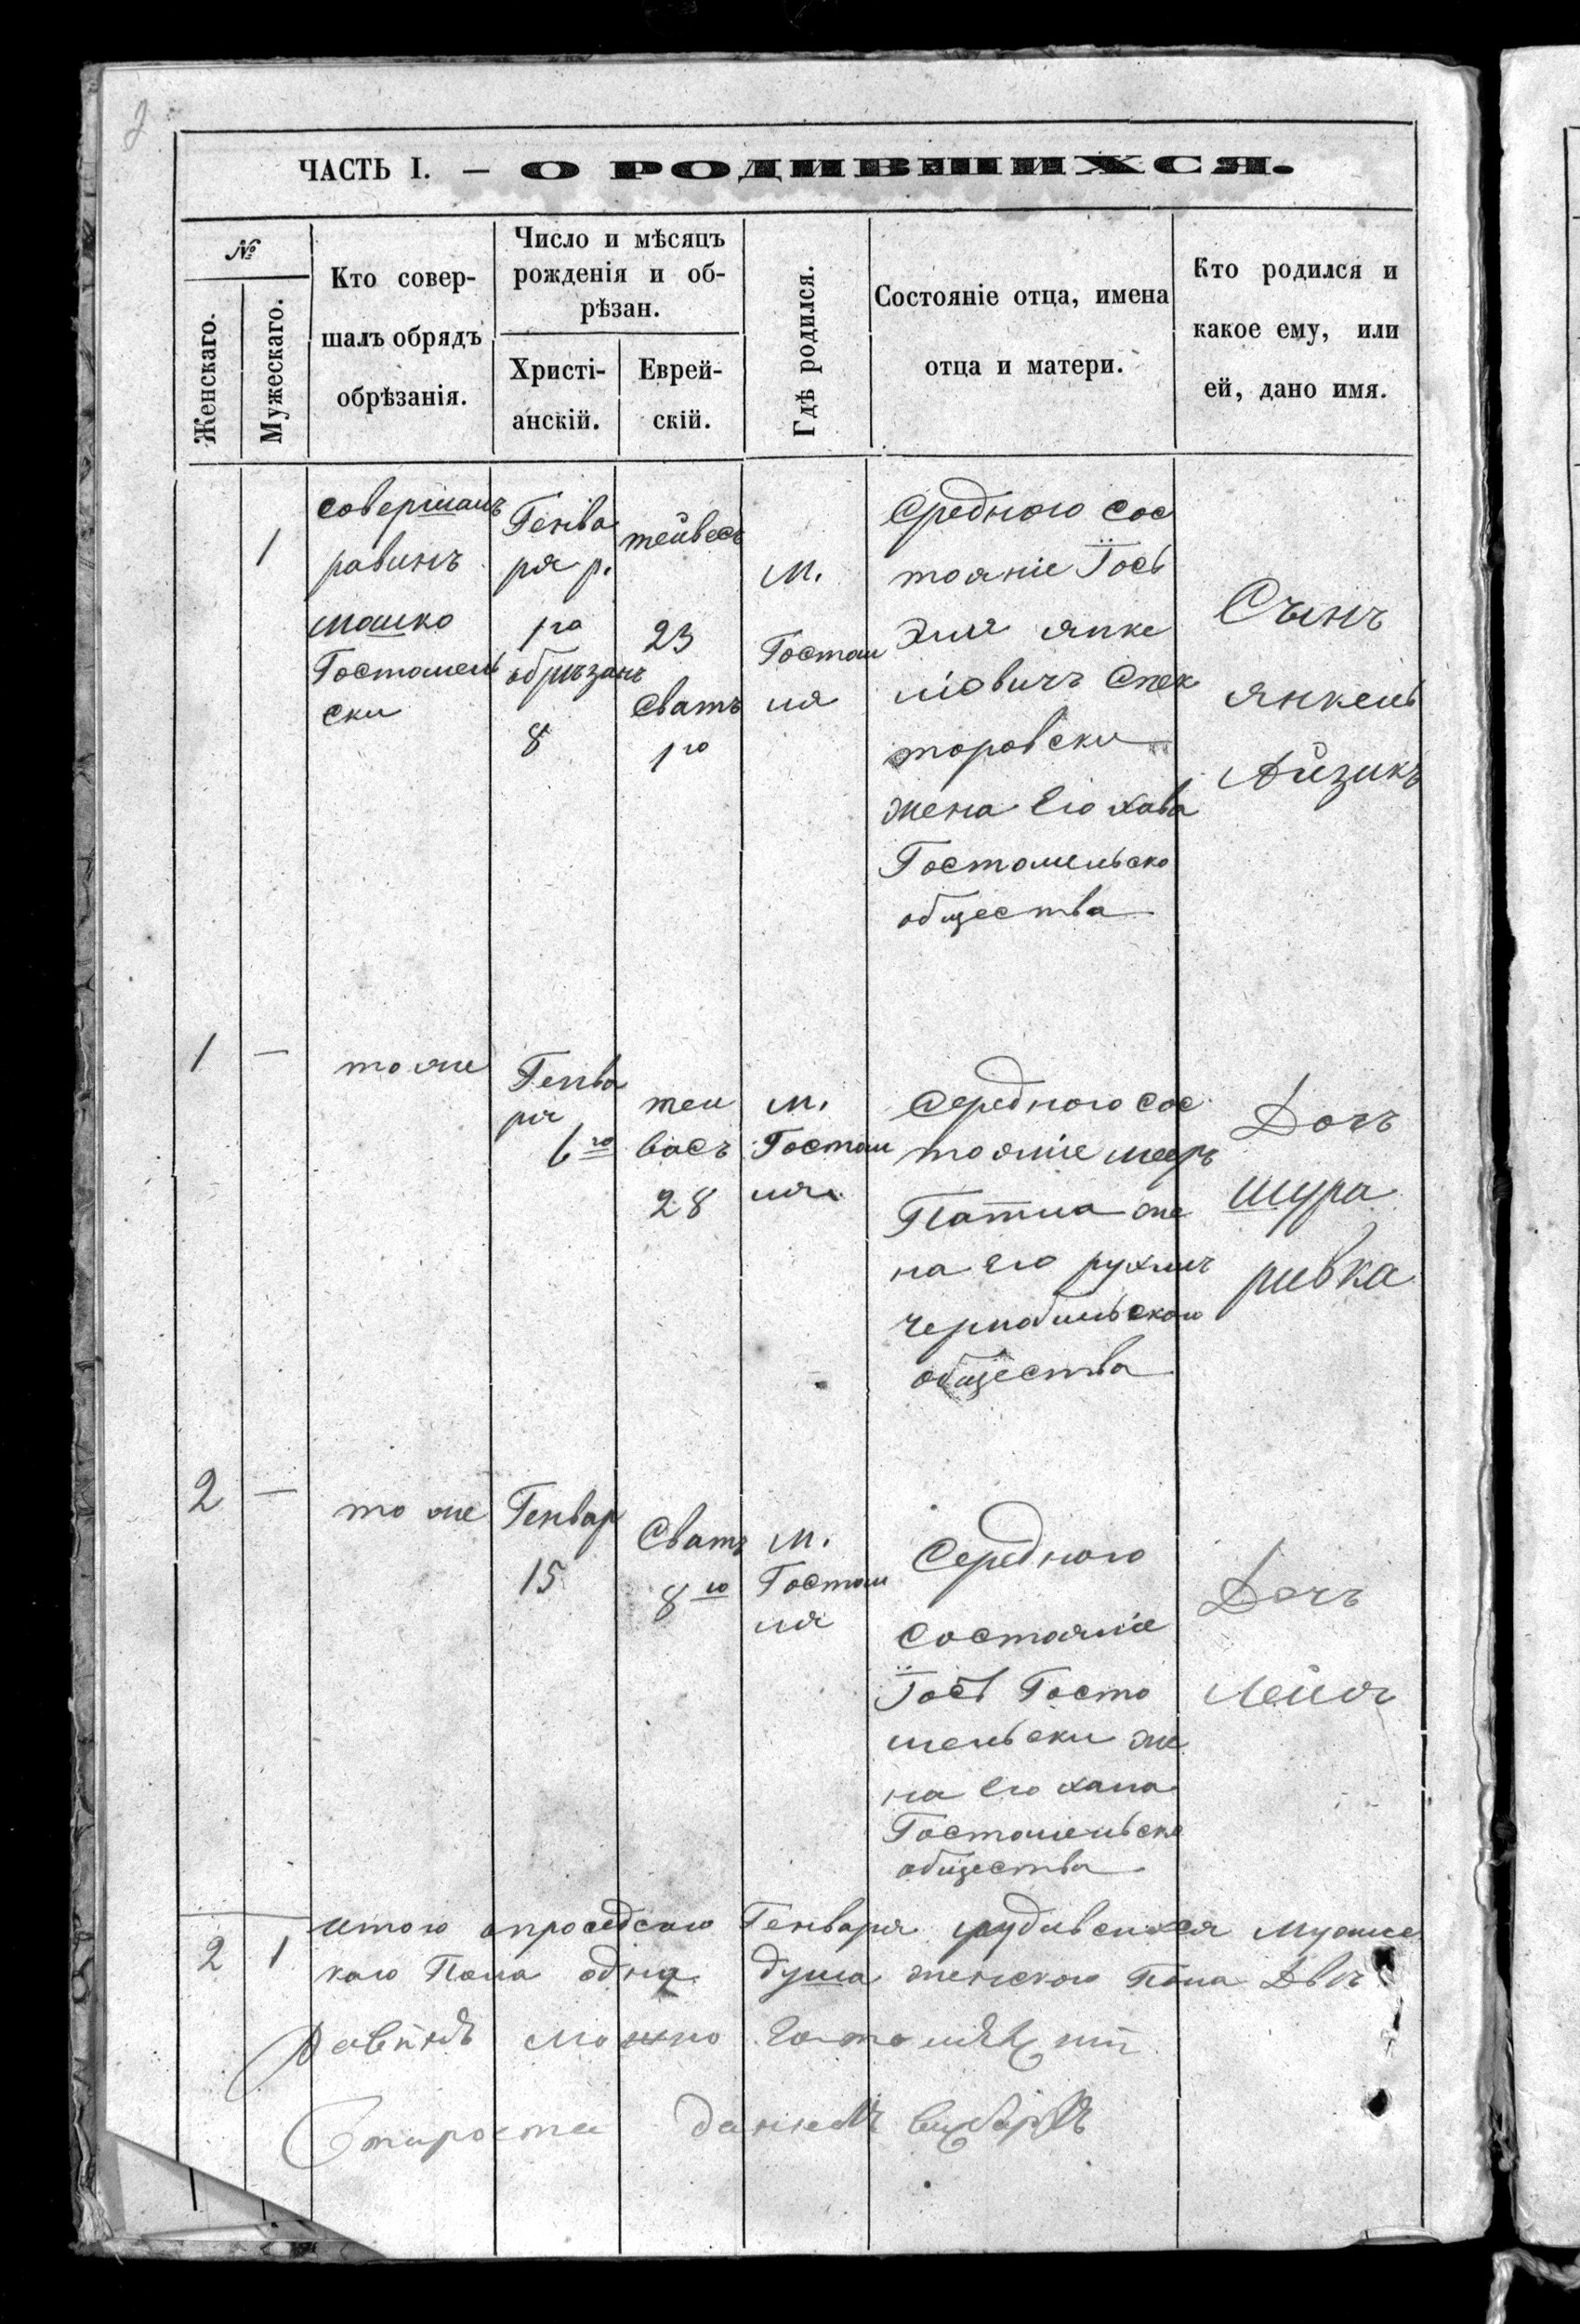 2
ЧАСТЬ I. — О РОДИВШИХСЯ.
№
Женскаго.
Мужескаго.
Кто совер-
шалъ обрядъ
обрѣзанія.
Число и мѣсяцъ
рожденія и об-
рѣзан.
Христі-
анскій.
Еврей-
скій.
Гдѣ родился.
Состояніе отца, имена
отца и матери.
Кто родился и
какое ему, или
ей, дано имя.
1
совершалъ
равинъ
мошко
Гостомель
ски
Генва
ря р.
1го
обрѣзанъ
8
тейвесъ
23
Сватъ
1го
м.
Гостом
ля
Средного сос
тояніе Іось
Эля янке
ліовичъ Спек
торовски
жена Его хава
Гостомельско
общества
Сынъ
янкель
Айзикъ
1 —
тоже
Генва
ря
6го
теи
васъ
28
м.
Гостом
ля
Середного сос
тояніе мееръ
жe
на Его рухля
чернобильского
общества
Дочь
шура
ривка
2 —
тоже
Генвар
15
Сватъ
8го
м.
Гостом
ля
Середного
состояніе
Іось Госто
мельски же
на Его хана
Гостомельско
общества
Дочь
Лейя
2 1
итого Генваря мужес
каго Пола одна душа женского Пола Двѣ
Равінъ мошко
Староста